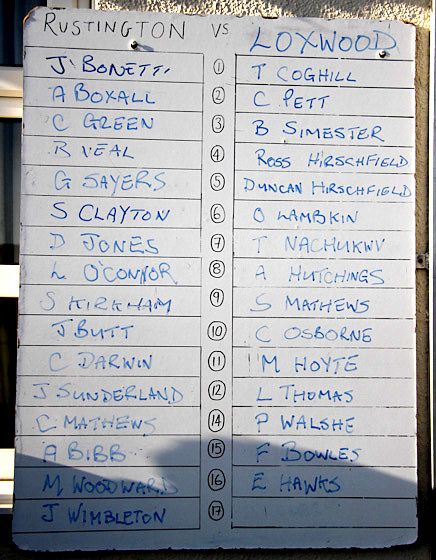 RUSTINGTON VS LOXWOOD
J BONETTI 1 T COGHILL
A BOXALL 2 C PETT
C GREEN 3 B SIMESTER
R NEAL 4 ROSS HIRSCHFIELD
G SAYERS 5 DUNCAN HIRSCHFIELD
S CLAYTON 6 O LAMBKIN
D JONES 7 T NACHUKWU
L O'CONNOR 8 A HUTCHINGS
S KIRKHAM 9 S MATHEWS
J BUTT 10 C OSBORNE
C DARWIN 11 M HOYTE
J SUNDERLAND 12 L THOMAS
C MATHEWS 14 P WALSHE
A BIBB 15 F BOWLES
M WOODWARD 16 E HAWKS
J WIMBLETON 17